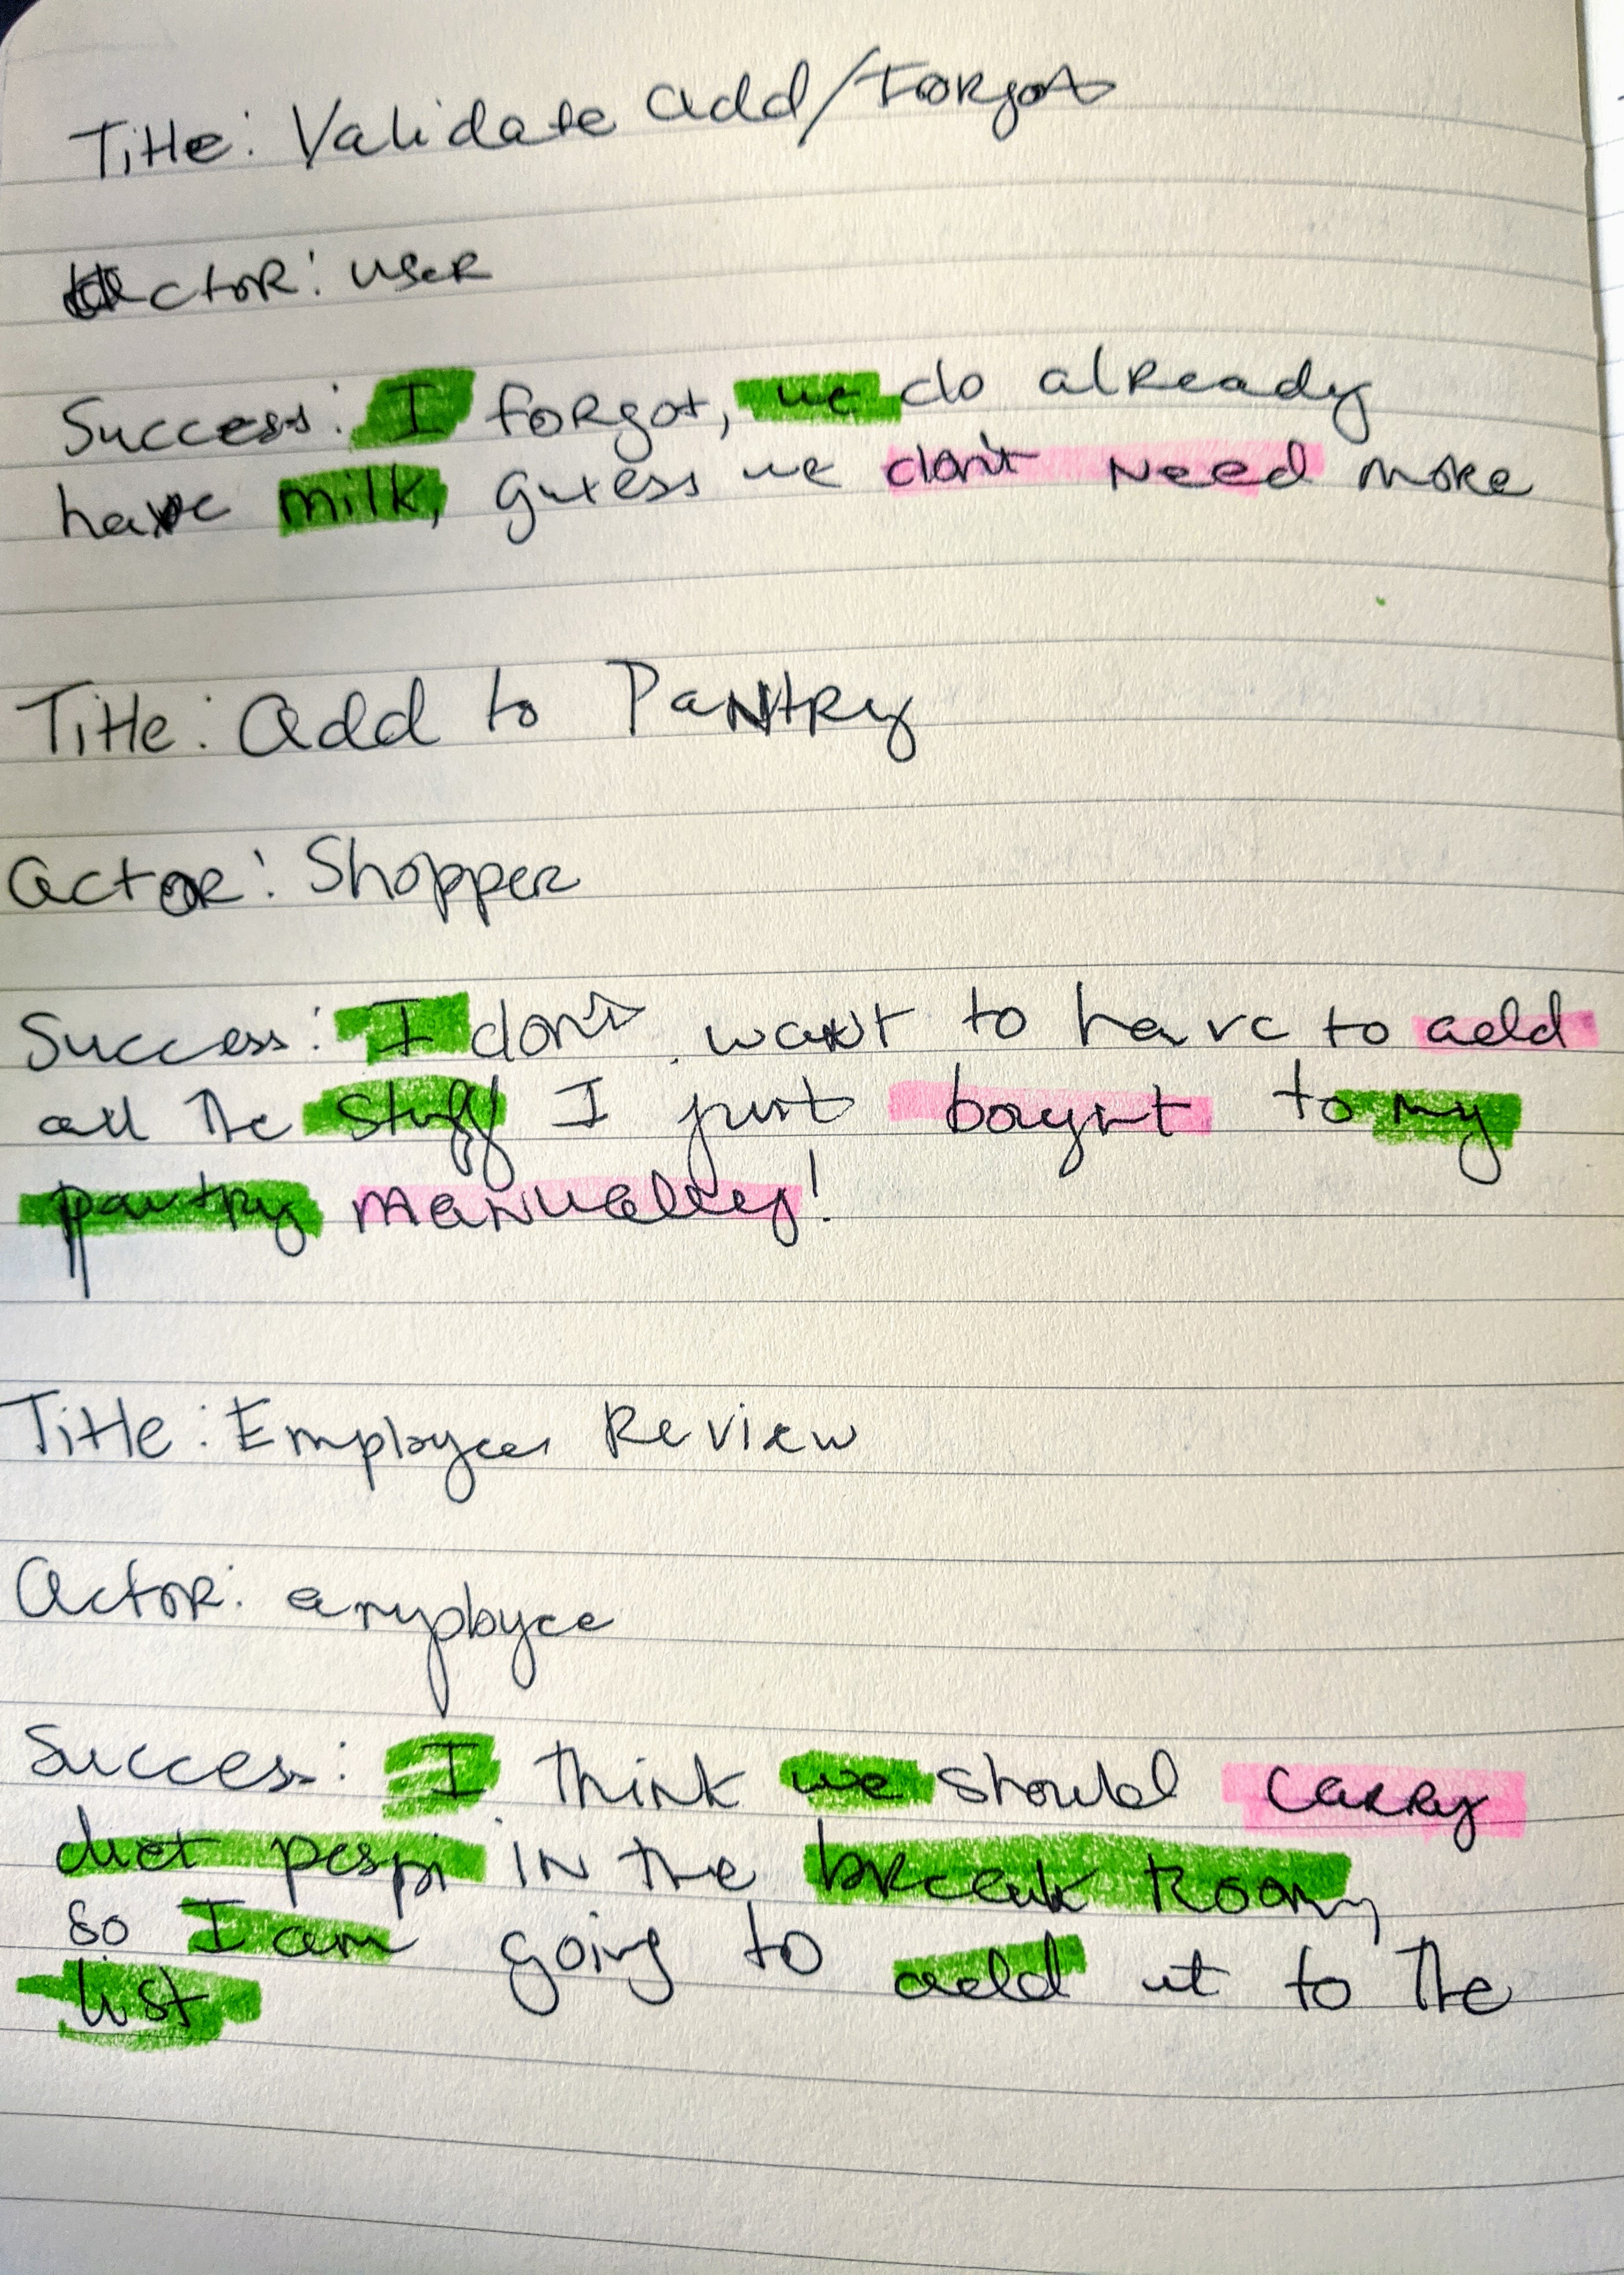 Title: Validate add/Forgot
actor: user
Success: I forgot, we do already
have milk, guess we don't need more
Title: add to Pantry
actor: Shopper
Success: I don't want to have to add
all the stuff I just bought to my
pantry manually!
Title: Employee Review
actor: employee
Success: I think we should carry
diet pespi in the break room,
so I am going to add it to the
list